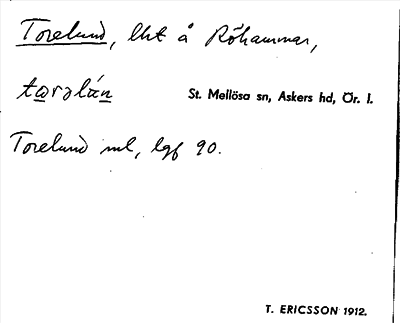 Torelund, lht å Röhammar,
tarəlán
St. Mellösa sn, Askers hd, Ör. l.
Torelund ml, lgf 90.
T. ERICSSON 1912.